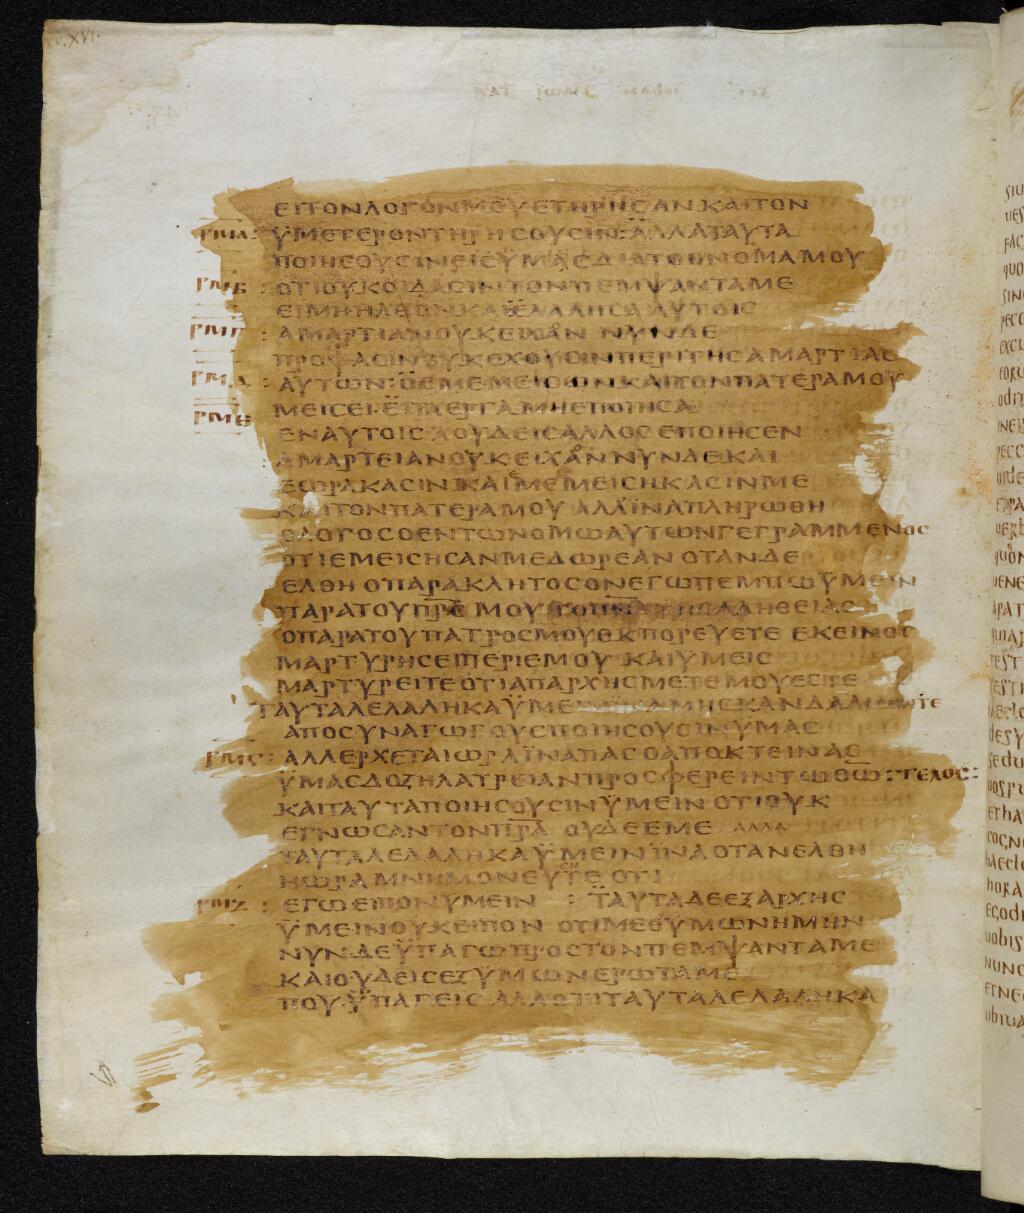 ΕΙΤΟΝΛΟΓΟΝΜΟΥΕΤΗΡΗΣΑΝ ΚΑΙΤΟΝ
ΡΜΑ: ΫΜΕΤΕΡΟΝΤΗΡΗΣΟΥΣΙΝ: ΑΛΛΑΤΑΥΤΑ
ΠΟΙΗΣΟΥΣΙΝΕΙΣΫΜΑΣΔΙΑΤΟΥΝΟΜΑΜΟΥ
ΡΜΒ : ΟΤΙΟΥΚΟΙΔΑΣΙΝΤΟΝΠΕΜΨΑΝΤΑΜΕ
ΕΙΜΗΗΛΘΟΝ ΚΑΙΕΛΑΛΗΣΑΑΥΤΟΙΣ
ΡΜΓ : ΑΜΑΡΤΙΑΝΟΥΚΕΙΧΑΝ ΝΥΝΔΕ
ΠΡΟΨΑΣΙΝΟΥΚΕΧΟΥΣΙΝΠΕΡΙΤΗΣΑΜΑΡΤΙΑΣ
ΡΜΔ : ΑΥΤΩΝ: ΟΕΜΕΜΕΙΣΩΝ ΚΑΙΤΟΝΠΑΤΕΡΑΜΟΥ
ΡΜΕ ΜΕΙΣΕΙ· ΕΙΤΑΕΡΓΑΜΗΕΠΟΙΗΣΑ
ΕΝΑΥΤΟΙΣ ΑΟΥΔΕΙΣΑΛΛΟΣ ΕΠΟΙΗΣΕΝ
ΑΜΑΡΤΕΙΑΝΟΥΚΕΙΧΑΝ ΝΥΝΔΕΚΑΙ
ΕΩΡΑΚΑΣΙΝ ΚΑΙΕΜΕΜΕΙΣΗΚΑΣΙΝΜΕ
ΚΑΙΤΟΝΠΑΤΕΡΑΜΟΥ ΑΛΛΪΝΑΠΛΗΡΩΘΗ
ΟΛΟΓΟΣΟΕΝΤΩΝΟΜΩΑΥΤΩΝΓΕΓΡΑΜΜΕΝΟΣ
ΟΤΙΕΜΕΙΣΗΣΑΝΜΕΔΩΡΕΑΝ ΟΤΑΝΔΕ
ΕΛΘΗ ΟΠΑΡΑΚΛΗΤΟΣΟΝΕΓΩΠΕΜΠΩΫΜΕΙΝ
ΠΑΡΑΤΟΥΠΡΣ ΜΟΥ ΤΟΠΝΑΤΗΣΑΛΗΘΕΙΑΣ
ΟΠΑΡΑΤΟΥΠΑΤΡΟΣΜΟΥΕΚΠΟΡΕΥΕΤΕ ΕΚΕΙΝΟΣ
ΜΑΡΤΥΡΗΣΕΙΠΕΡΙΕΜΟΥ ΚΑΙΫΜΕΙΣ
ΜΑΡΤΥΡΕΙΤΕΟΤΙΑΠΑΡΧΗΣΜΕΤΕΜΟΥΕΣΤΕ
ΤΑΥΤΑΛΕΛΑΛΗΚΑΫΜΕΙΝΙΝΑΜΗΣΚΑΝΔΑΛΙΣΘΗΤΕ
ΑΠΟΣΥΝΑΓΩΓΟΥΣΠΟΙΗΣΟΥΣΙΝΫΜΑΣ
ΡΜϚ: ΑΛΛΕΡΧΕΤΑΙΩΡΑΪΝΑΠΑΣΟΑΠΟΚΤΕΙΝΑΣ
ΫΜΑΣΔΟΞΗΛΑΤΡΕΙΑΝΠΡΟΣΦΕΡΕΙΝΤΩΘΩ: ΤΕΛΟΣ:
ΚΑΙΤΑΥΤΑΠΟΙΗΣΟΥΣΙΝΫΜΕΙΝ ΟΤΙΟΥΚ
ΕΓΝΩΣΑΝΤΟΝΠΡΑ ΟΥΔΕΕΜΕ ΑΛΛΑ
ΤΑΥΤΑΛΕΛΑΛΗΚΑΫΜΕΙΝΪΝΑΟΤΑΝΕΛΘΗ
ΗΩΡΑΜΝΗΜΟΝΕΥΗΤΕ ΟΤΙ
ΡΜΖ : ΕΓΩΕΙΠΟΝΥΜΕΙΝ : ΤΑΥΤΑΔΕΕΞΑΡΧΗΣ
ΫΜΕΙΝΟΥΚΕΙΠΟΝ ΟΤΙΜΕΘΥΜΩΝΗΜΗΝ
ΝΥΝΔΕΫΠΑΓΩΠΡΟΣΤΟΝΠΕΜΨΑΝΤΑΜΕ
ΚΑΙΟΥΔΕΙΣΕΞΫΜΩΝΕΡΩΤΑΜΕ
ΠΟΥ·ΫΠΑΓΕΙΣ ΑΛΛΟΤΙΤΑΥΤΑΛΕΛΑΛΗΚΑ